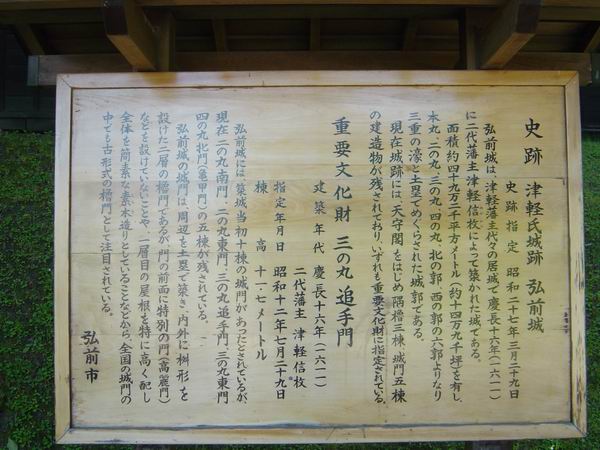 史跡 津軽氏城跡 弘前城
史跡指定 昭和二十七年三月二十九日
弘前城は、津軽藩主代々の居城で慶長十六年(一六一一)
に二代藩主津軽信枚によって築かれた城である。
面積約四十九万二千平方メートル(約十四万九千坪)を有し、
本丸、二の丸、三の丸、四の丸、北の郭、西の郭の六郭よりなり
三重の濠と土塁でめぐらされた城郭である。
現在城跡には、天守閣をはじめ隅櫓三棟、城門五棟
の建造物が残されており、いずれも重要文化財に指定されている。
重要文化財 三の丸 追手門
建築年代 慶長十六年(一六一一)
二代藩主 津軽信枚
指定年月日 昭和十二年七月二十九日
棟高 十一・七メートル
弘前城には、築城当初十棟の城門があったとされているが、
現在二の丸南門、二の丸東門、三の丸追手門、三の丸東門
四の丸北門(亀甲門)の五棟が残されている。
弘前城の城門は、周辺を土塁で築き、内外に枡形を
設けた二層の櫓門であるが、門の前面に特別の門(高麗門)
などを設けていないことや、一層目の屋根を特に高く配し
全体を簡素な素木造りとしていることなどから、全国の城門の
中でも古形式の櫓門として注目されている。
弘前市